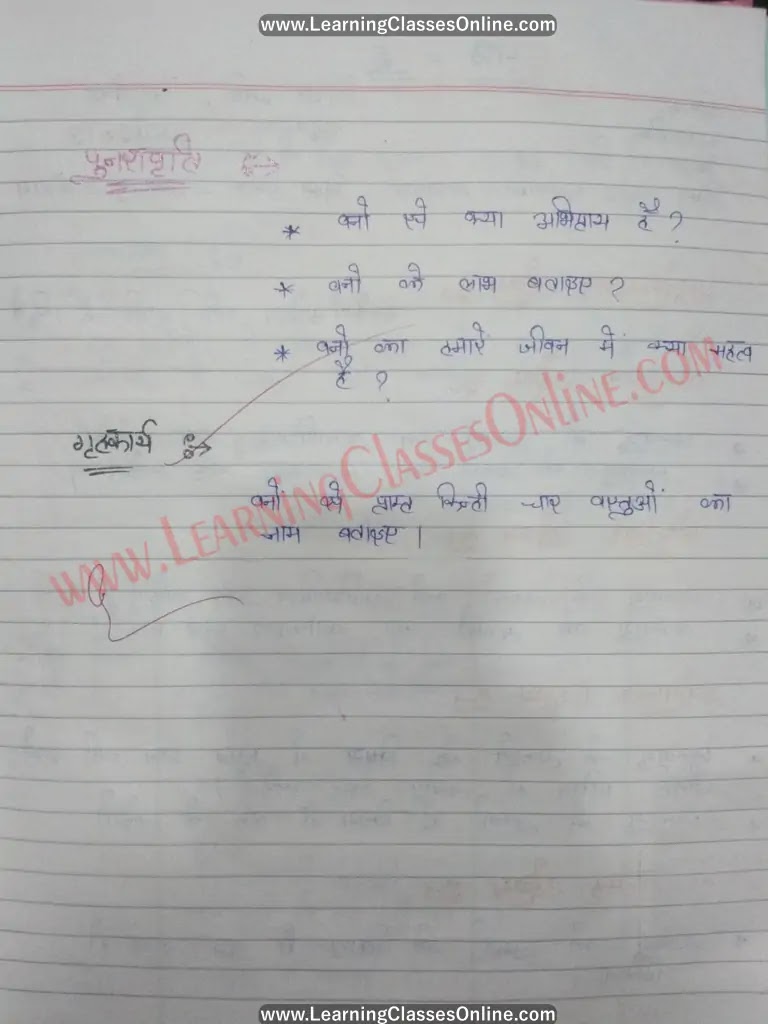 www.LearningClassesOnline.com
पुनरावृति
* वनो से क्या अभिप्राय है ?
* वनो के लाभ बताइए ?
* वनो का हमारे जीवन में क्या महत्व
है ?
गृहकार्य
वनों से प्राप्त किन्ही चार वस्तुओं का
नाम बताइए ।
www.LearningClassesOnline.com
www.LearningClassesOnline.com